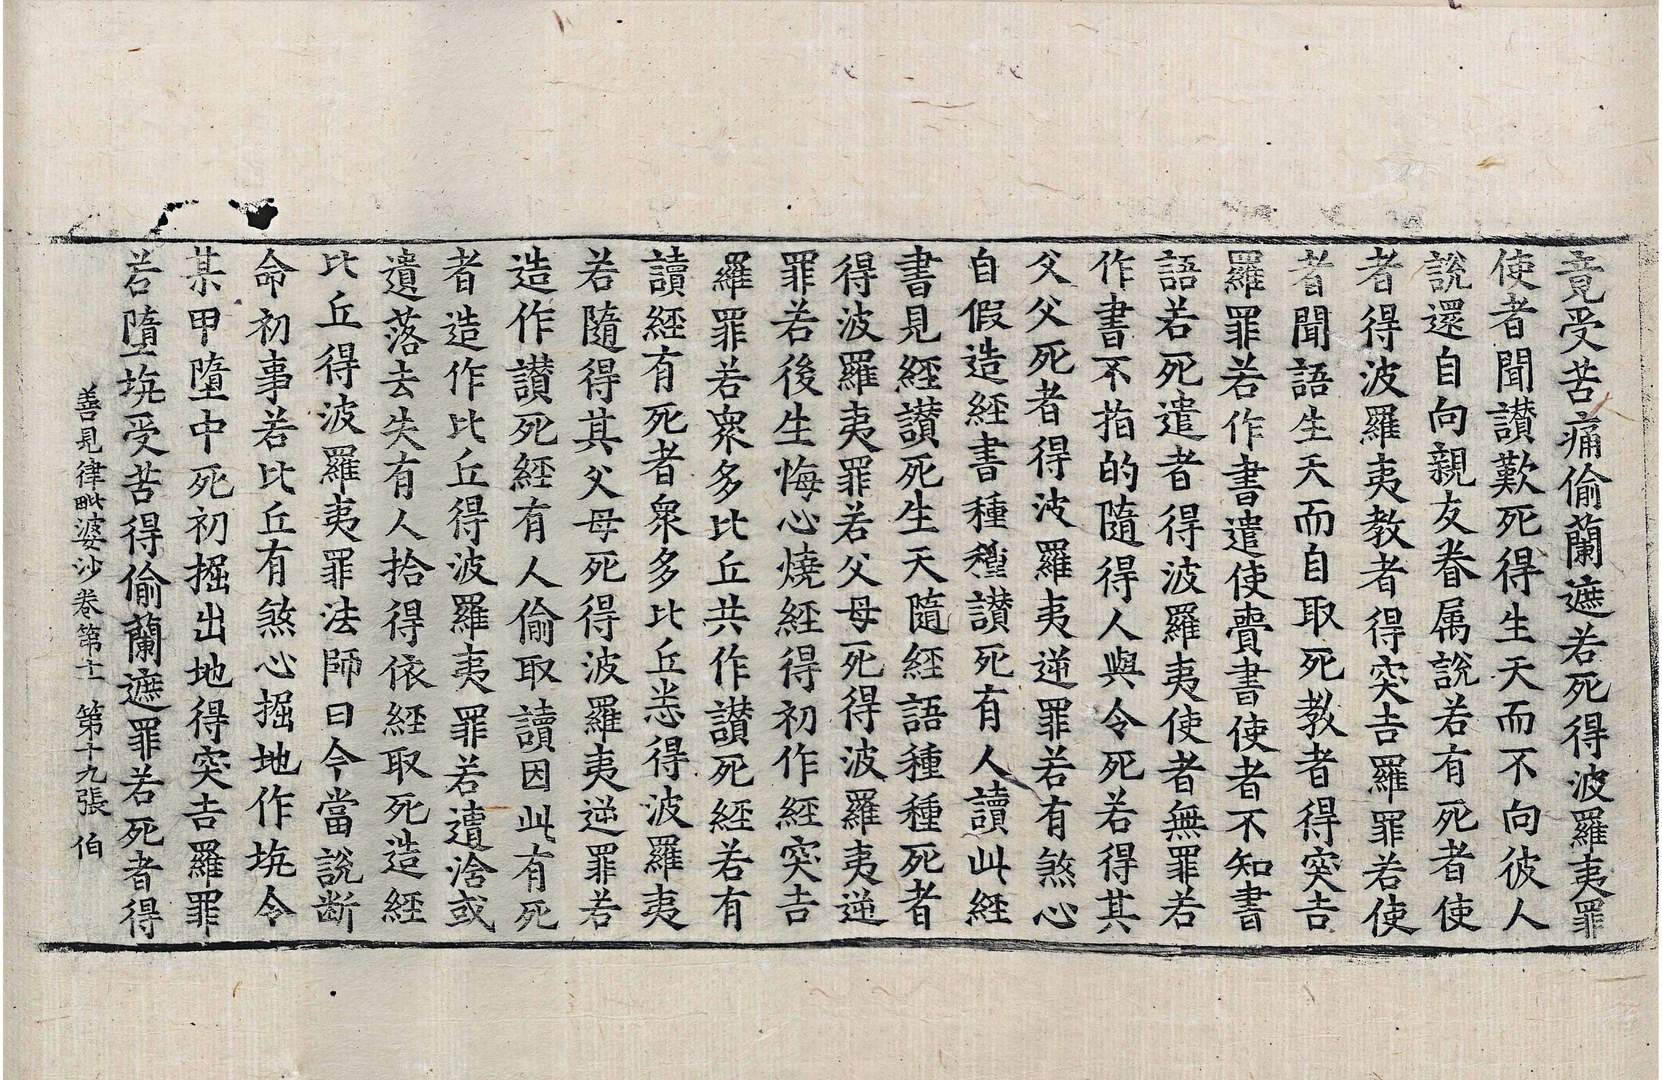 竟受苦痛偷蘭遮若死得波羅夷罪
使者聞讃歎死得生天而不向彼人
說還自向親友眷属說若有死者使
者得波羅夷教者得突吉羅罪若使
者聞語生天而自取死教者得突吉
羅罪若作書遣使賷書使者不知書
語若死遣者得波羅夷使者無罪若
作書不指的隨得人與令死若得其
父父死者得波羅夷逆罪若有煞心
自假造經書種種讃死有人讀此經
書見經讃死生天隨經語種種死者
得波羅夷罪若父母死得波羅夷逆
罪若後生悔心燒經得初作經突吉
羅罪若衆多比丘共作讃死經若有
讀經有死者衆多比丘悉得波羅夷
若隨得其父母死得波羅夷逆罪若
造作讃死經有人偷取讀因此有死
者造作比丘得波羅夷罪若遺渰或
遺落去失有人拾得依經取死造經
比丘得波羅夷罪法師曰今當說断
命初事若比丘有煞心掘地作坑令
某甲墮中死初掘出地得突吉羅罪
若墮坑受苦得偷蘭遮罪若死者得
善見律毗婆沙卷第十一 第十九張 伯